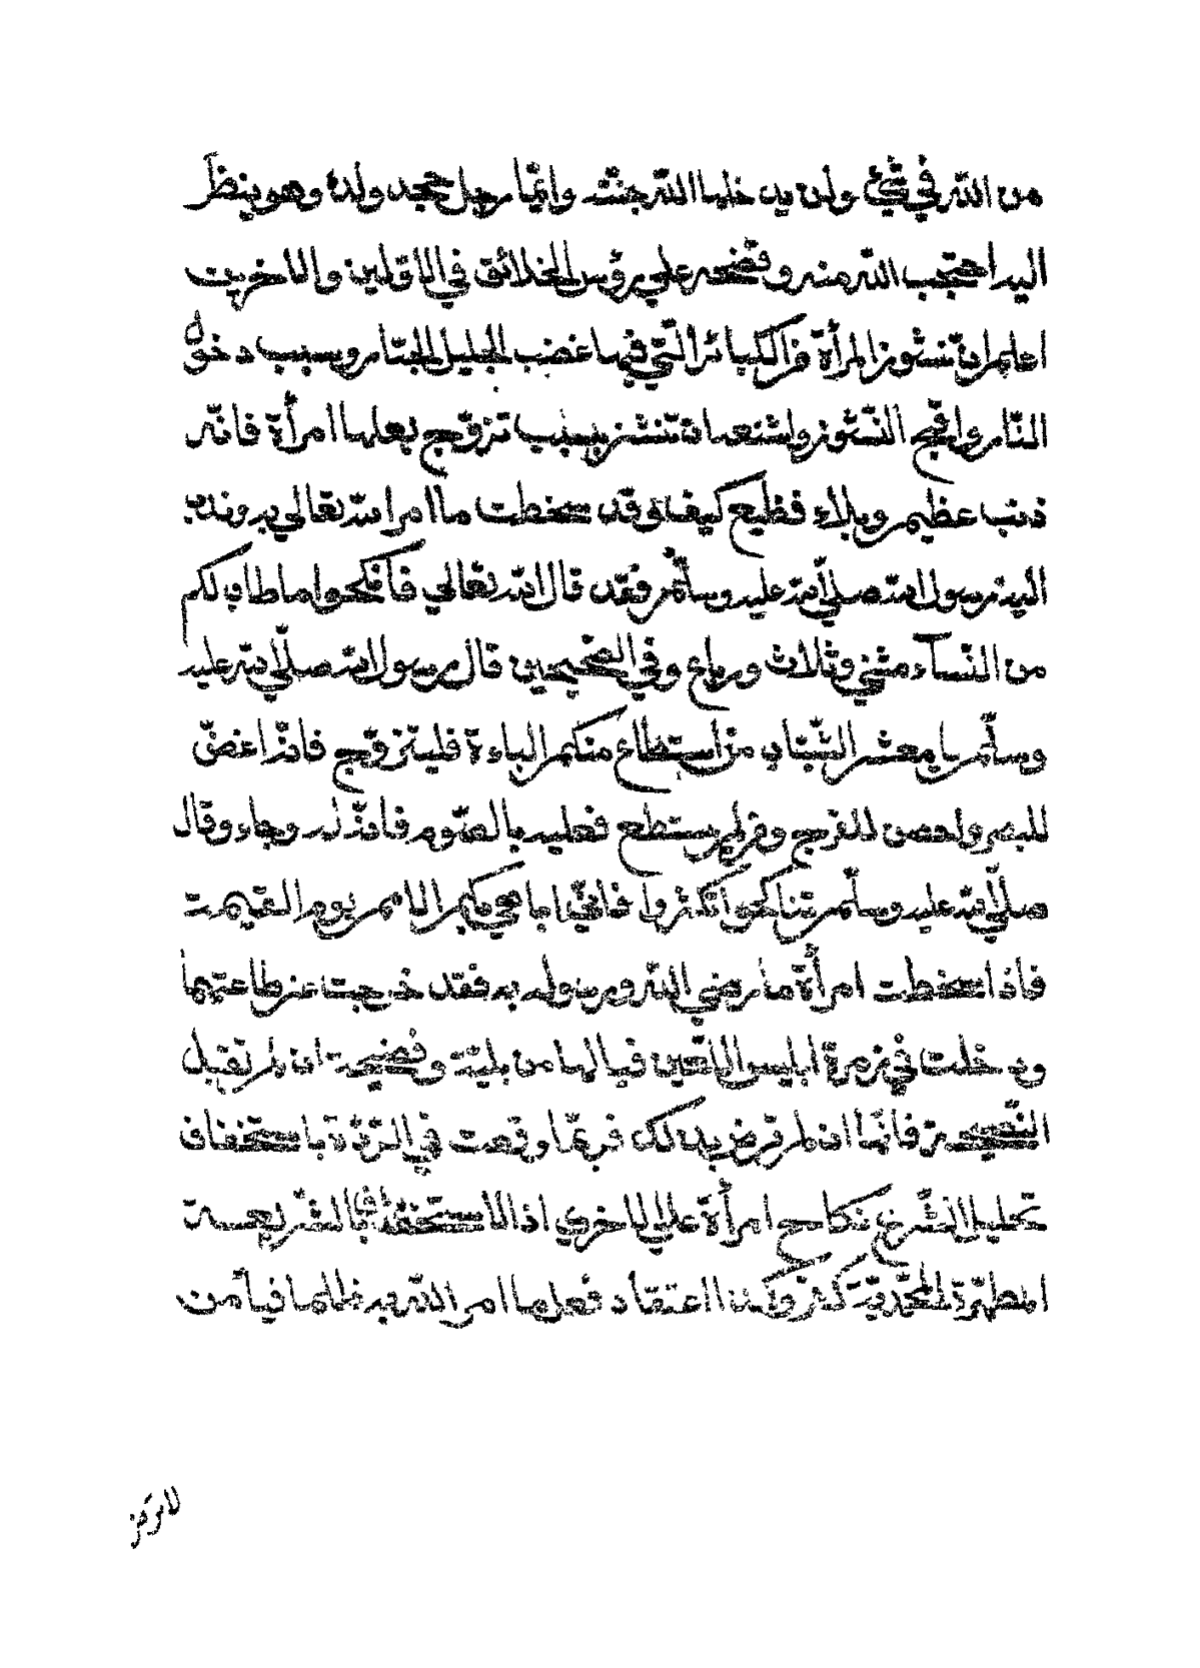 من الله في شيئ ولن يدخلها الله جنته وانما رجل جحد ولده وهو ينظر
اليه احتجب الله منه وفضحه علي رؤس الخلائق في الاولين والاخرين
اعلم ان نشوز المرأة من الكبائر التي فيها غضب الجليل الجبار وسبب دخول
النار واقبح النشوز واشنعه ان تنشز بسبب تزوج بعلها امرأة فانه
ذنب عظيم وبلاء فظيع كيف قد سخطت ما امر الله تعالي به وندب
اليه رسول الله صلي الله عليه وسلم فقد قال الله تعالي فانكحوا ما طاب لكم
من النساء مثني وثلاث ورباع وفي الصحيحين قال رسول الله صلي الله عليه
وسلم يا معشر الشباب من استطاع منكم الباءة فليتزوج فانه اغض
للبصر واحصن للفرج ومن لم يستطع فعليه بالصوم فانه له وجاء وقال
صلي الله عليه وسلم تناكحوا تكثروا فاني اباهي بكم الامم يوم القيمة
فاذا سخطت امرأة ما رضي الله ورسوله به فقد خرجت عن طاعتهما
ودخلت في زمرة ابليس اللعين فيا لها من بلية وفضيحة ان لم تقبل
النصيحة فانها ان لم ترض بذلك فربما وقعت في الردة باستخفاف
تحليل الشرع نكاح امرأة علي الاخري اذ الاستخفاف بالشريعة
المطهرة المحمدية كفر وكذا اعتقاد فعل ما امر الله به ظلما فيا من